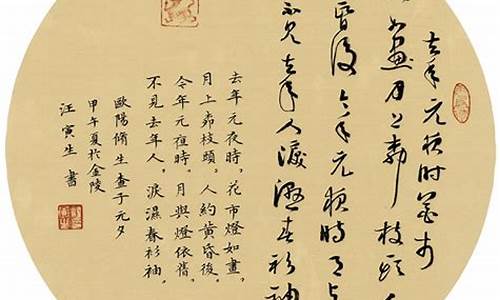 去年元夜時花市
如畫月上柳枝頭人
昏後今年元夜時月與
不見去年人淚濕春衫袖
去年元夜時，花市燈如畫，
月上柳枝頭，人約黃昏後，
今年元夜時，月與燈依舊，
不見去年人，淚濕春衫袖，
歐陽脩 生查子元夕
甲午夏於金陵
汪寅生 書